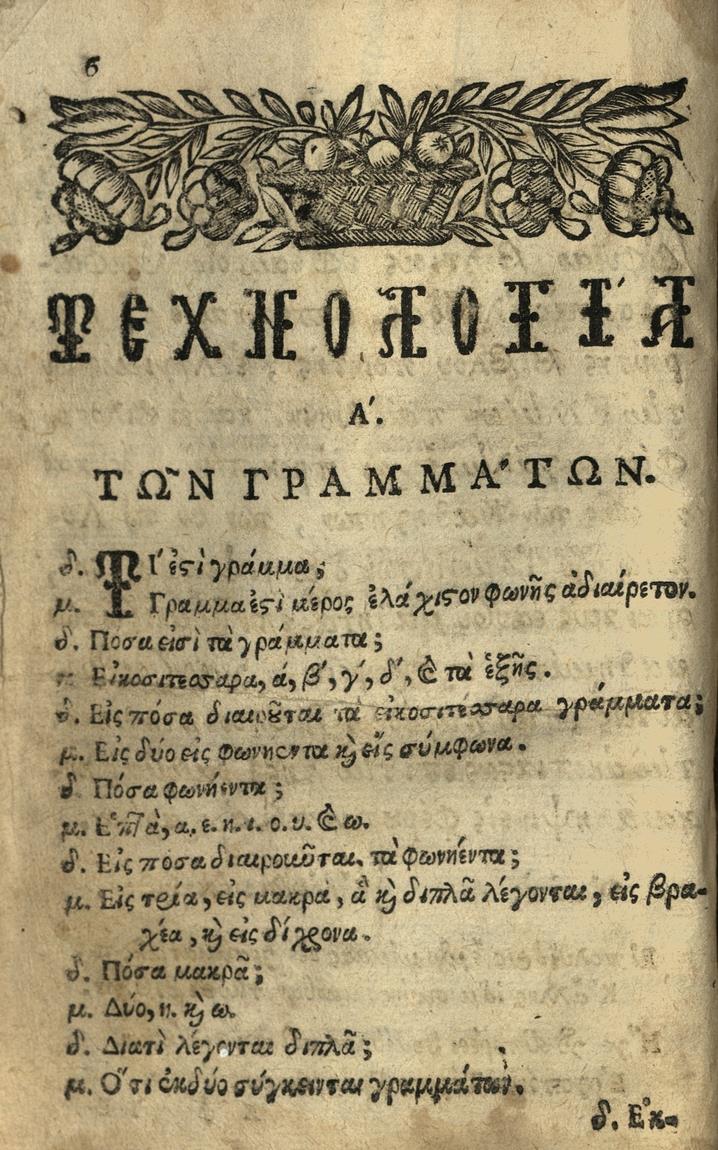 6
ΤΕΧΝΟΛΟΓΙΑ
Α´.
ΤΩ͂Ν ΓΡΑΜΜΑ´ΤΩΝ.
δ. ΤΙ´ ἐςὶ γράμμα;
μ. Γραμμα ἐςὶ μέρος ἐλάχιςον φωνῆς ἀδιαίρετον.
δ. Ποσα εἰσὶ τὰ γράμματα;
μ. Εἰκοσιτεσσαρα, ά, β´, γ´, δ´, & τὰ ἑξῆς.
δ. Εἰς πόσα διαιροῦται τὰ εἰκοσιτέσσαρα γράμματα;
μ. Εἰς δύο εἰς φωνήεντα ϗ εἰς σύμφωνα.
δ. Πόσα φωνήεντα;
μ. Ε῾πτὰ, α. ε. η. ι. ο. υ. & ω.
δ. Εἰς ποσα διαιροιῦται τὰ φωνήεντα;
μ. Εἰς τρία, εἰς μακρὰ, ἃ ϗ διπλᾶ λέγονται, εἰς βρα-
χέα, ϗ εἰς δίχρονα.
δ. Πόσα μακρᾶ;
μ. Δύο, η. ϗ ω.
δ. Διατὶ λέγονται διπλᾶ;
μ. Ο῞τι ἐκ δύο σύγκεινται γραμμάτων.
δ. Ε᾿κ-